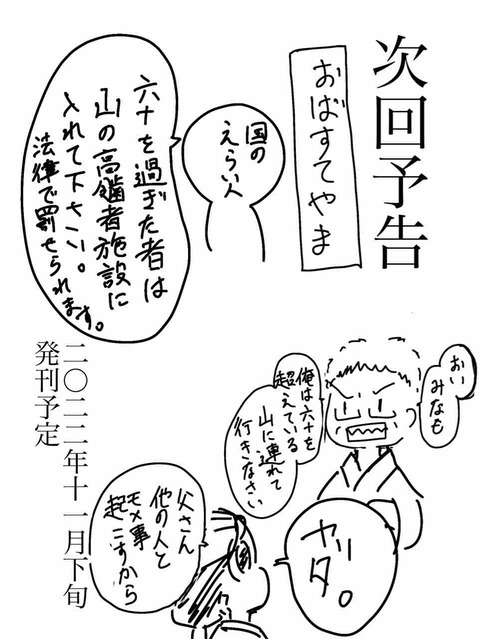 次回予告
おばすてやま
国の
えらい人
六十を過ぎた者は
山の高齢者施設に
入れて下さい。
法律で罰せられます。
おい
みなも
俺は六十を
超えている
山に連れて
行きなさい
ヤダ。
父さん
他の人と
モメ事
起こすから
二〇二二年十一月下旬
発刊予定